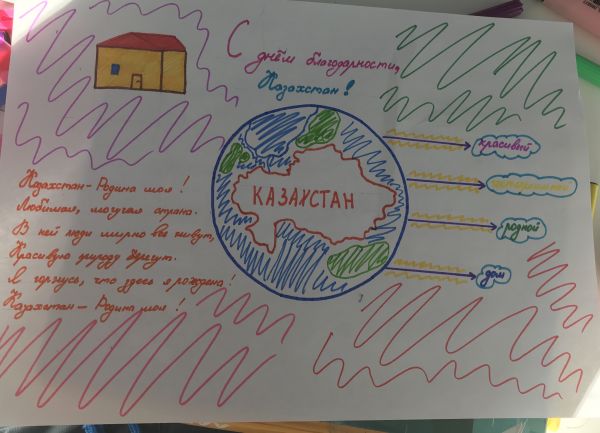 С днём благодарности,
Казахстан!
Казахстан - Родина моя!
Любимая, могучая страна.
В ней люди мирно все живут,
Красивую природу берегут.
Я горжусь, что здесь я рождена!
Казахстан - Родина моя!
КАЗАХСТАН
красивый
родной
дом